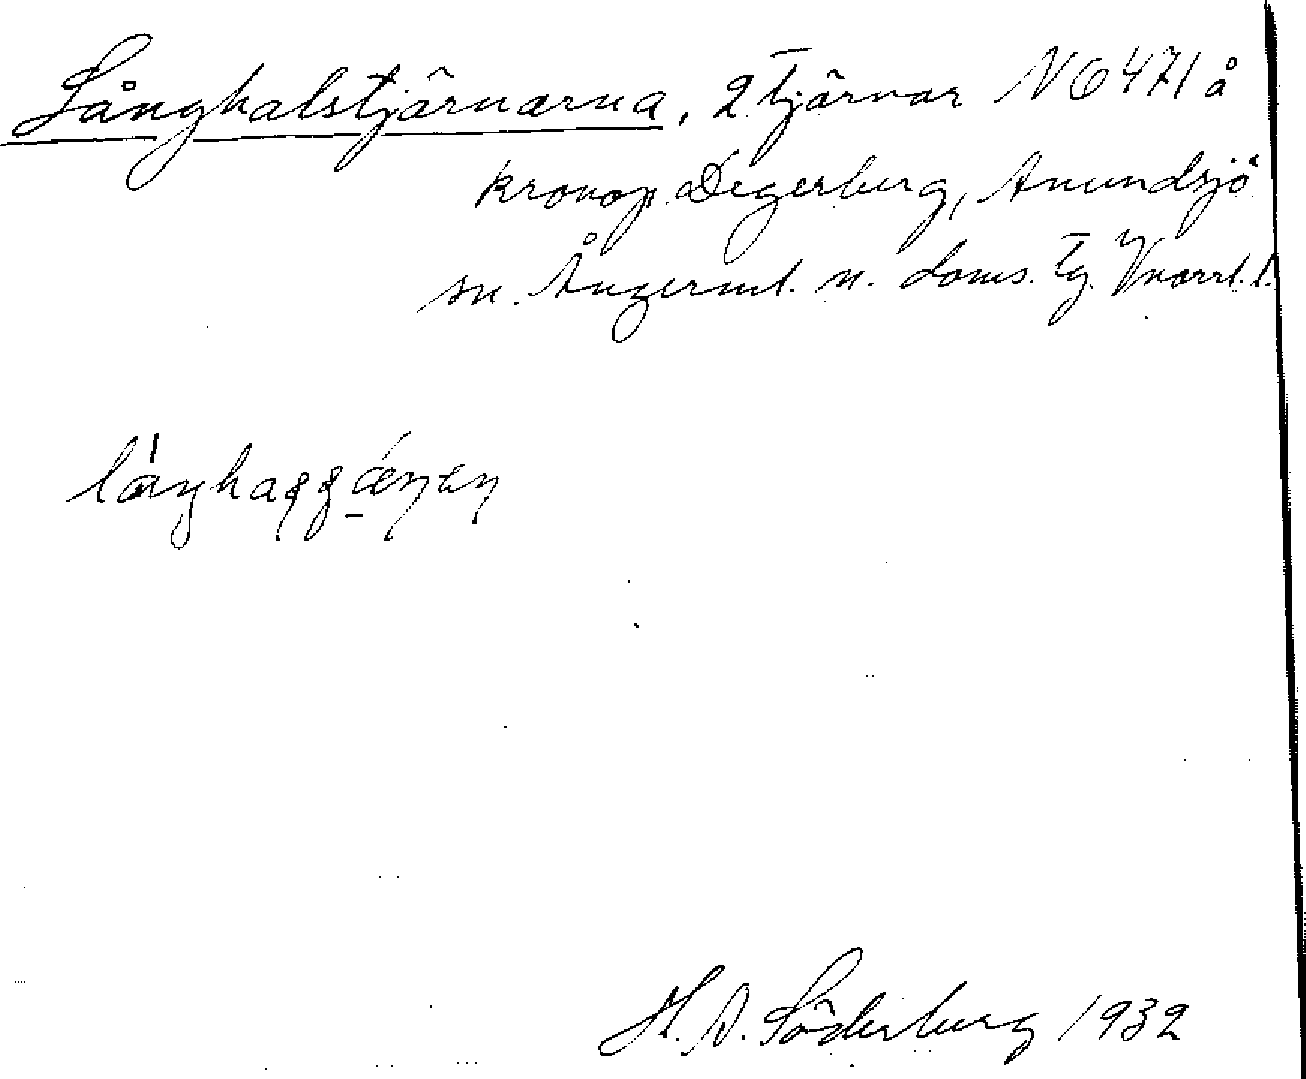 Långhalstjärnarna, 2 tjärnar N 6471 å
kronop. Degerberg, Anundsjö
sn. Ångerml. n. doms. tg. Vnorrl. l.
H. A. Söderberg 1932